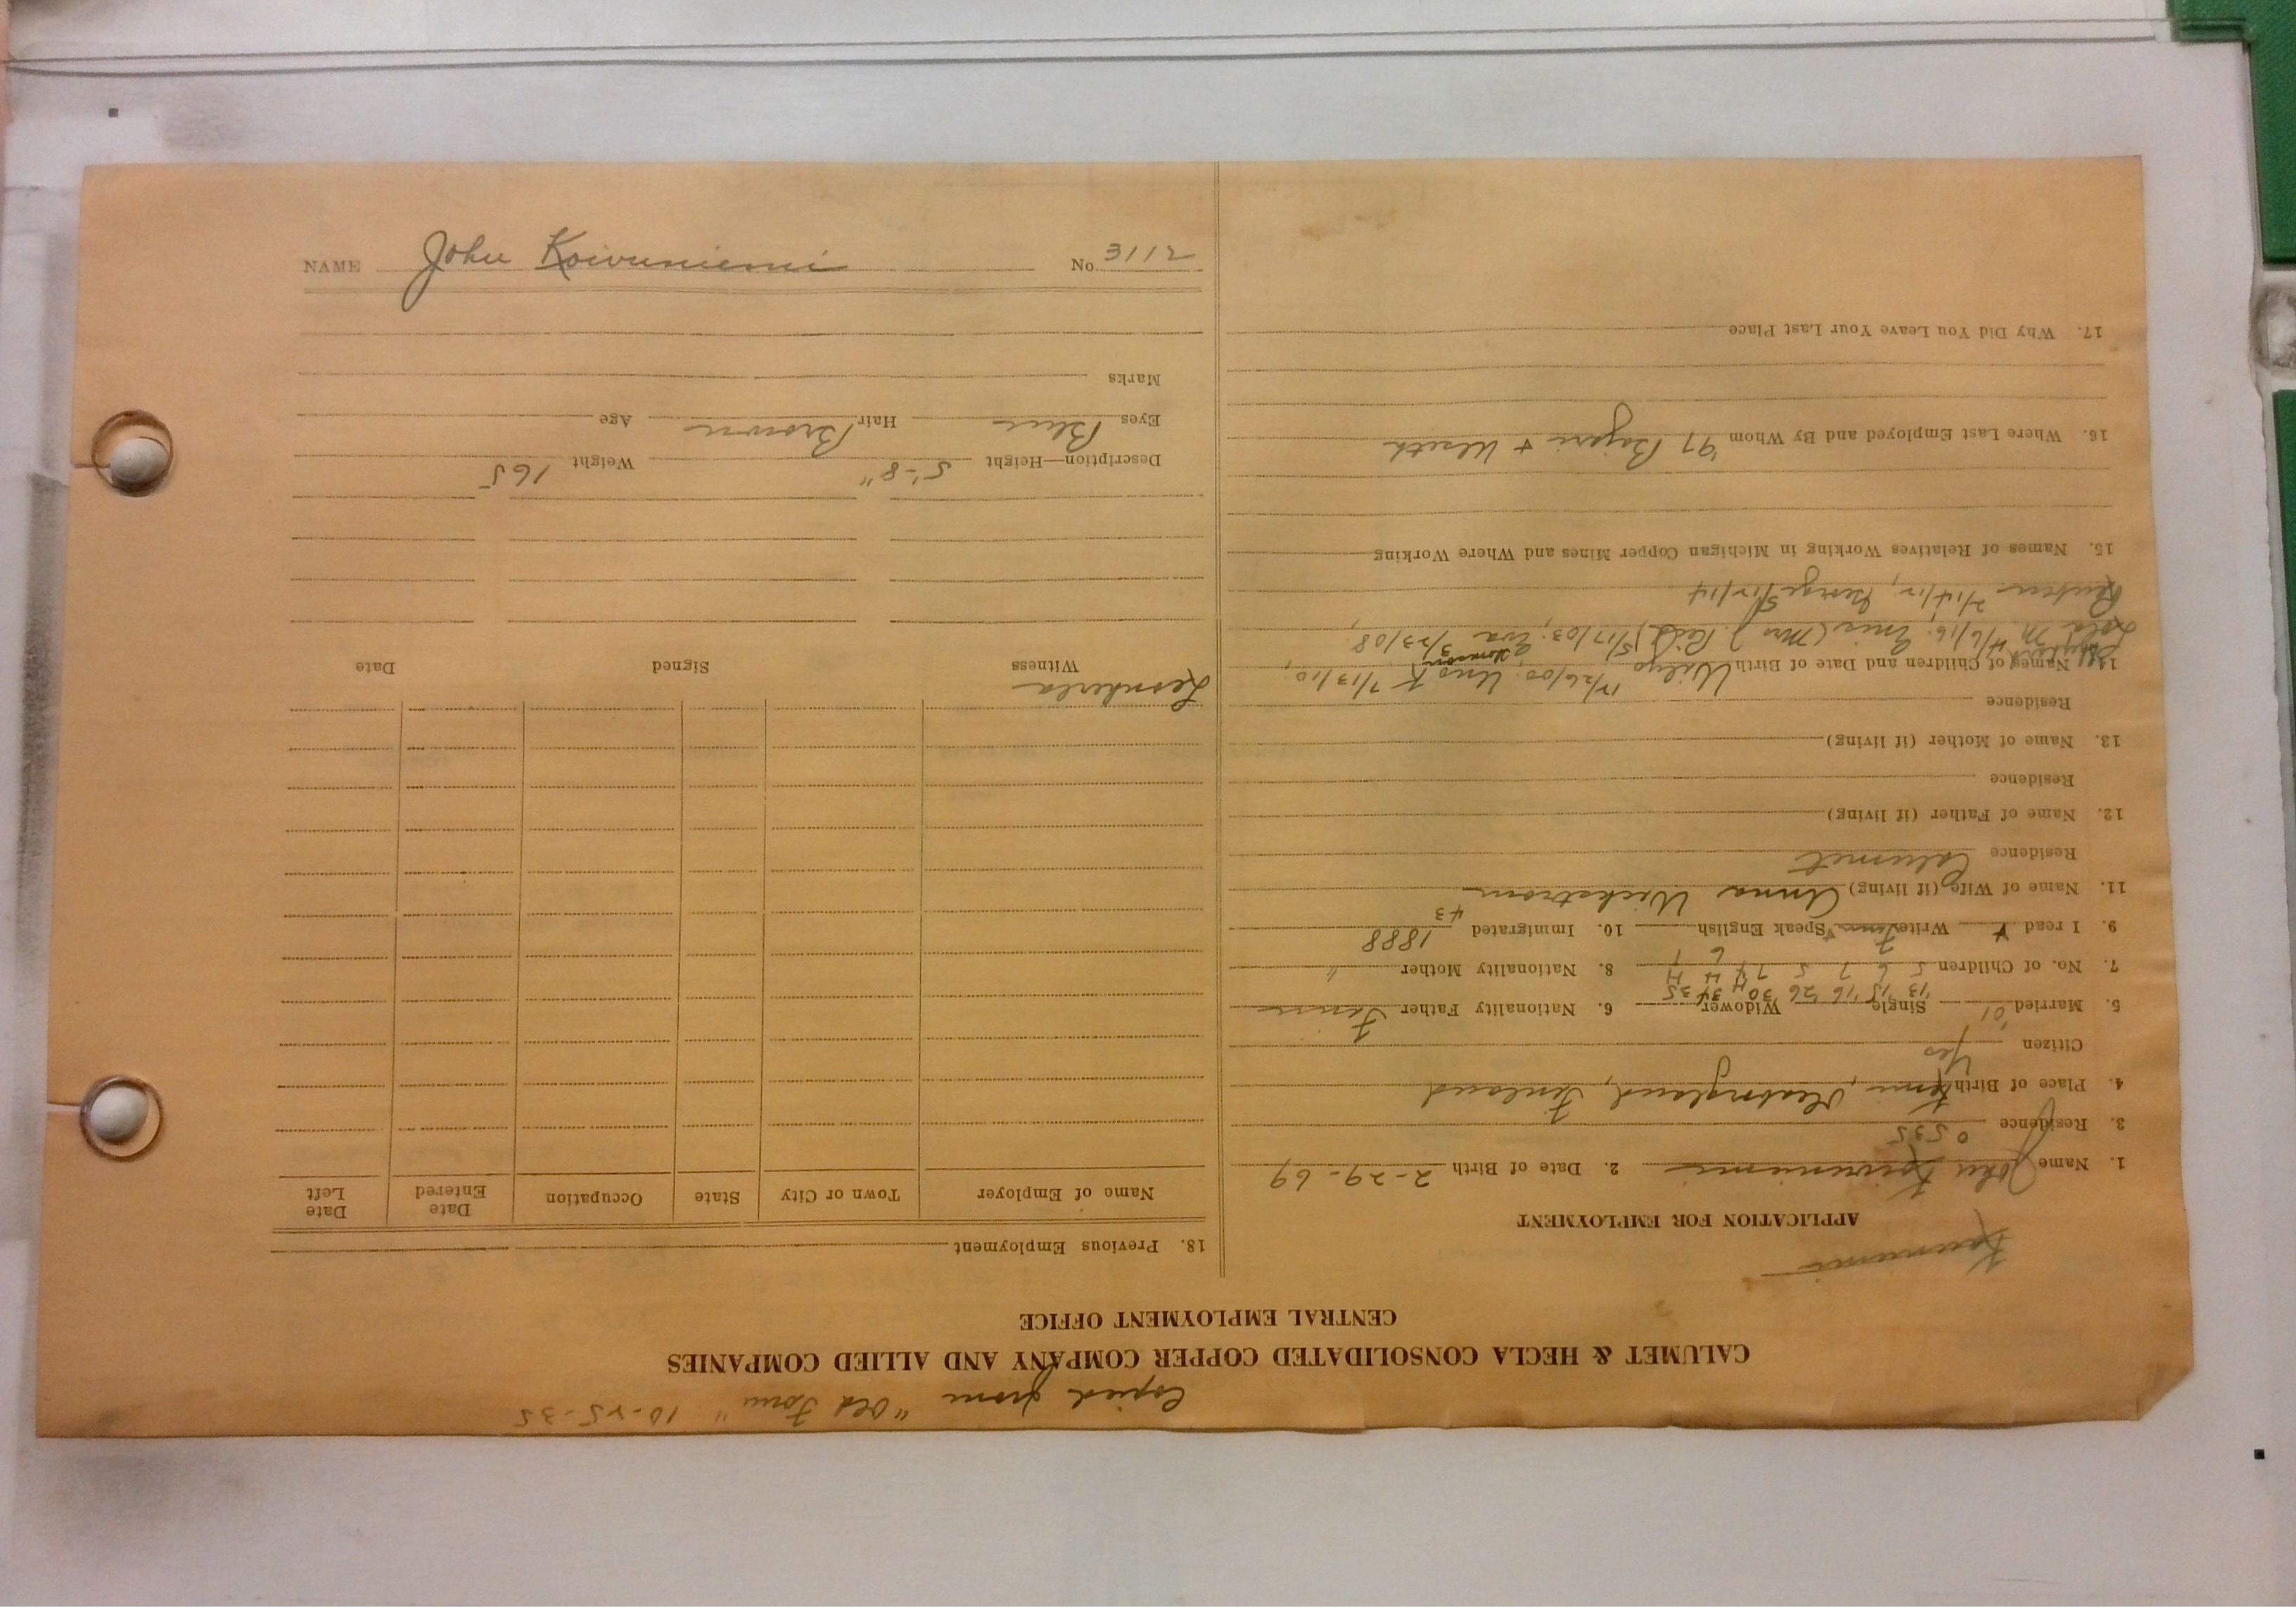 Copied from "Old Form" 10-25-35
CALUMET & HECLA CONSOLIDATED COPPER COMPANY AND ALLIED COMPANIES
CENTRAL EMPLOYMENT OFFICE
APPLICATION FOR EMPLOYMENT
1. Name John Koivuniemi 2. Date of Birth 2-29-69
3. Residence 0535
4. Place of Birth Kemi, Finland
Citizen Yes
5. Married '01 Single Widower 6. Nationality Father Finn
'13 '15 '16 '26 30 34 35
7. No. of Children 5 6 7 5 7 H H 8. Nationality Mother "
9. I read Write Finn Speak English 10. Immigrated 1888
43
11. Name of Wife (if living) Anna Wickstrom
Residence Calumet
12. Name of Father (if living)
Residence
13. Name of Mother (if living)
Residence
14. Names of Children and Date of Birth Wilijo 12/26/00. Uno K 7/13/10,
Lola M. 4/6/16. (Mrs J. 5/17/03. Eva 3/23/08.
Reuben 2/14/12, George 5/12/14
15. Names of Relatives Working in Michigan Copper Mines and Where Working
16. Where Last Employed and By Whom '97
17. Why Did You Leave Your Last Place
18. Previous Employment
Name of Employer Town or City State Occupation Date Entered Date Left
Witness Signed Date
Description—Height 5'-8" Weight 165
Eyes Blue Hair Brown Age
Marks
NAME John Koivuniemi No. 3112